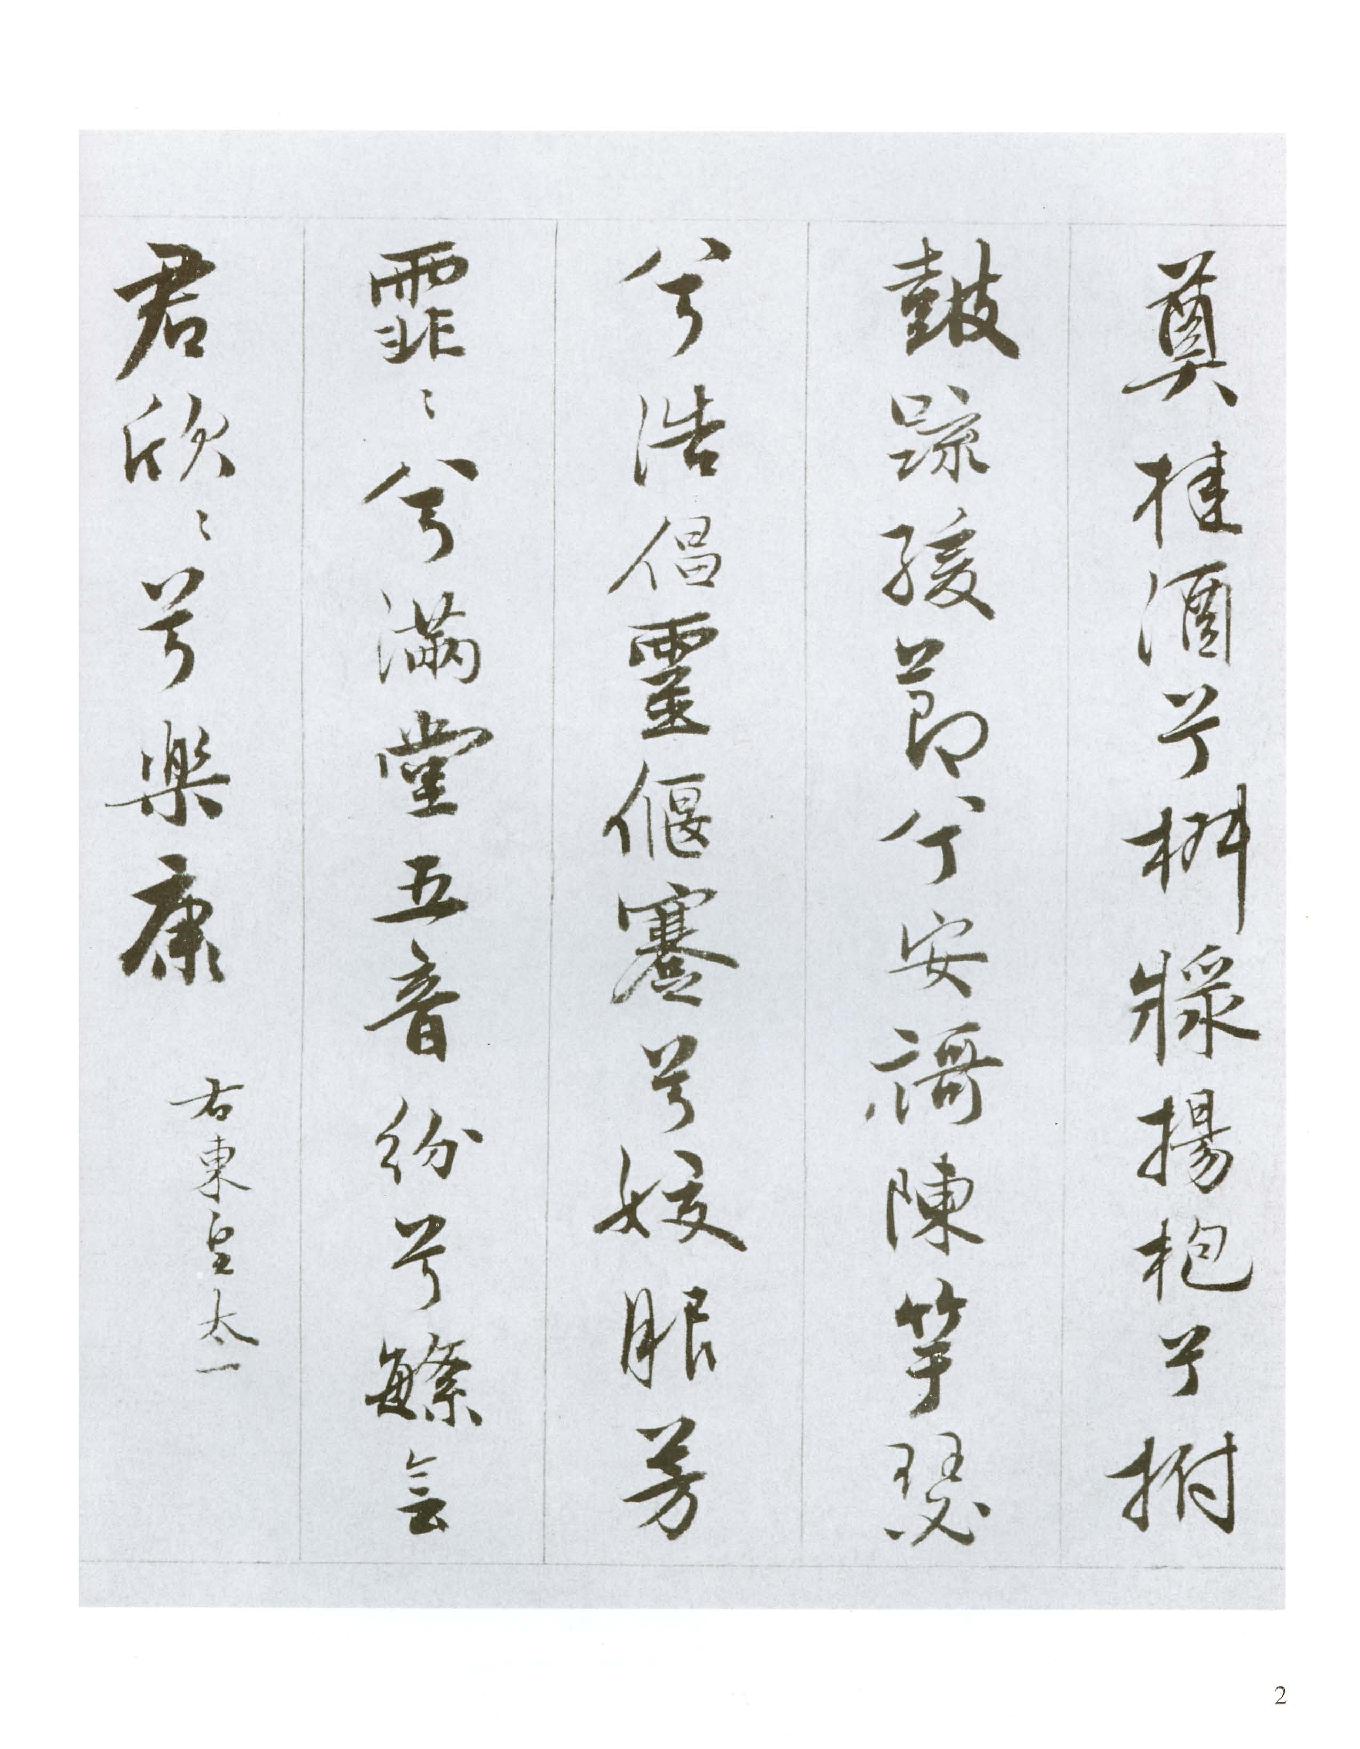 奠桂酒兮椒漿揚枹兮拊
鼓疏緩節兮安謌陳竽瑟
兮浩倡靈偃蹇兮姣服芳
霏〻兮滿堂五音紛兮繁會
君欣〻兮樂康
右東皇太一
2